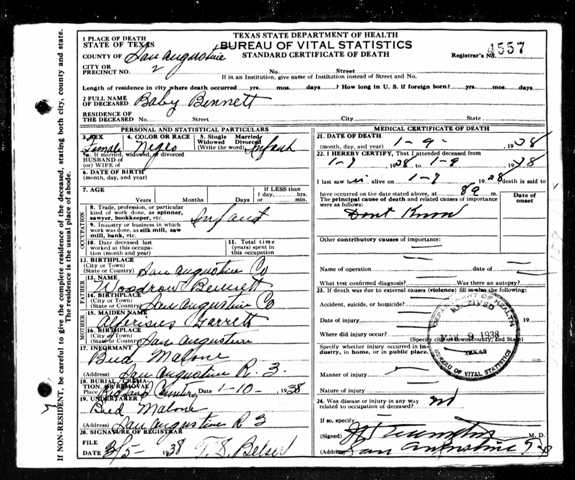 TEXAS STATE DEPARTMENT OF HEALTH
BUREAU OF VITAL STATISTICS
STANDARD CERTIFICATE OF DEATH
Registrar's No. 4557
1 PLACE OF DEATH
STATE OF TEXAS
COUNTY OF San Augustine
CITY OR
PRECINCT NO. 2 No. Street
If in an Institution, give name of Institution instead of Street and No.
Length of residence in city where death occurred yrs. mos. days? How long in U. S. if foreign born? yrs. mos. days
2 FULL NAME
OF DECEASED Baby Bennett
RESIDENCE OF
THE DECEASED No. Street City State
PERSONAL AND STATISTICAL PARTICULARS
3. SEX 4. COLOR OR RACE 5. Single Married
Widowed Divorced
(Write the word) Infant
Female Negro
If married, widowed, or divorced
HUSBAND of
(or) WIFE of
6. DATE OF BIRTH
(Month) (Day) (Year)
7. AGE
Years Months Days
If LESS than
1 day,
hrs.
min.
OCCUPATION
8. Trade, profession, or particular
kind of work done, as spinner,
sawyer, bookkeeper, etc. Infant
9. Industry or business in which
work was done, as silk mill, saw
mill, bank, etc.
10. Date deceased last
worked at this
occupation
11. Total time
(years) spent in
this occupation
12. BIRTHPLACE
(City or Town)
(State or Country) San Augustine Co
FATHER
13. NAME
Woodrow Bennett
14. BIRTHPLACE
(City or Town)
(State or Country) San Augustine Co
MOTHER
15. MAIDEN NAME
Garrett
16. BIRTHPLACE
(City or Town)
(State or Country) San Augustine
17. INFORMANT
Bud Malone
ADDRESS
San Augustine R. 3.
18. BURIAL, CREMATION, OR REMOVAL
Place Date 1-10- 1938
19. UNDERTAKER
Bud Malone
ADDRESS
San Augustine R 3
20. SIGNATURE OF REGISTRAR
FILE 1938
MEDICAL CERTIFICATE OF DEATH
21. DATE OF DEATH
1-9- 1938
22. I HEREBY CERTIFY, That I attended deceased from
1-9 1938 1-9 1938
I last saw alive on 1-9 1938 death is said to
have occurred on the date stated above, at 8 a m.
The principal cause of death and related causes of importance
were as follows:
Date of
onset
Dont Know
Other contributory causes of importance:
Name of operation
What test confirmed diagnosis? Was there an autopsy?
23. If death was due to external causes (violence) fill in also the following:
Accident, suicide, or homicide?
Date of injury
Where did injury occur?
(Specify city or town, county and State)
Specify whether injury occurred in industry, in home, or in public place.
Manner of injury
Nature of injury
24. Was disease or injury in any way
related to occupation of deceased?
If so, specify
(Signed) M. D.
(Address) San Augustine
1938
TEXAS
BUREAU OF VITAL STATISTICS
If NON-RESIDENT, be careful to give the complete residence of the deceased, stating both city, county and state.
The residence is the usual place of abode.